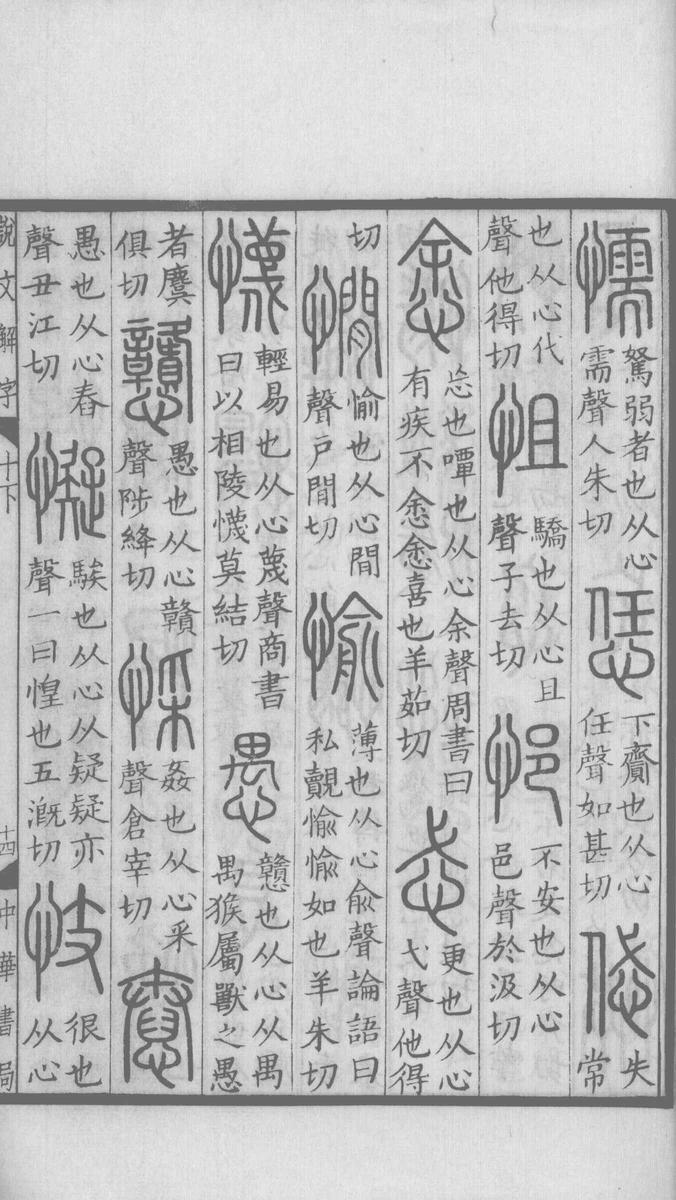 懦駑弱者也从心需聲人朱切恁下齎也从心任聲如甚切 失常
也从心代聲他得切怚驕也从心且聲子去切悒不安也从心邑聲於汲切
悆忘也嘾也从心余聲周書曰有疾不悆悆喜也羊茹切忒更也从心弋聲他得
切憪愉也从心閒聲戶閒切愉薄也从心俞聲論語曰私覿愉愉如也羊朱切
懱輕易也从心蔑聲商書曰以相陵懱莫結切愚戇也从心从禺禺猴屬獸之愚
者麌俱切戇愚也从心贛聲陟絳切㥒姦也从心采聲倉宰切惷
愚也从心舂聲丑江切懝騃也从心从疑疑亦聲一曰惶也五溉切忮很也从心
說文解字 十下 十四 中華書局